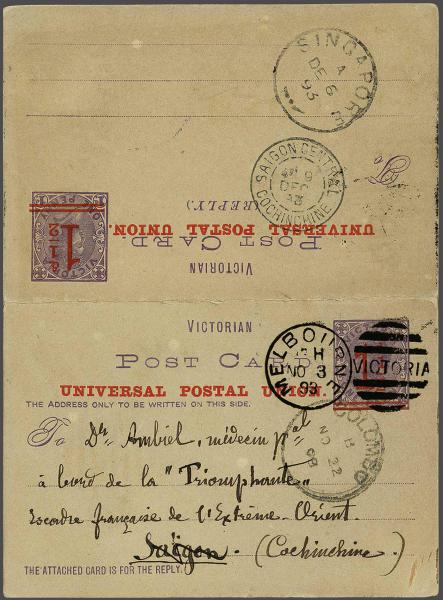 SINGAPORE
A
DE 6
93
SAIGON CENTRAL
9
DEC
93
COCHINCHINE
To
(REPLY).
UNIVERSAL POSTAL UNION.
POST CARD.
VICTORIAN
VICTORIA
1 1/2
VICTORIAN
POST CARD.
UNIVERSAL POSTAL UNION.
THE ADDRESS ONLY TO BE WRITTEN ON THIS SIDE.
MELBOURNE
H
NO 3
93
VICTORIA
COLOMBO
B
NO 22
To Dr Ambiel, médecin pal
à bord de la "Triomphante"
Escadre française de l'Extrême-Orient.
Saïgon. (Cochinchine.)
THE ATTACHED CARD IS FOR THE REPLY.